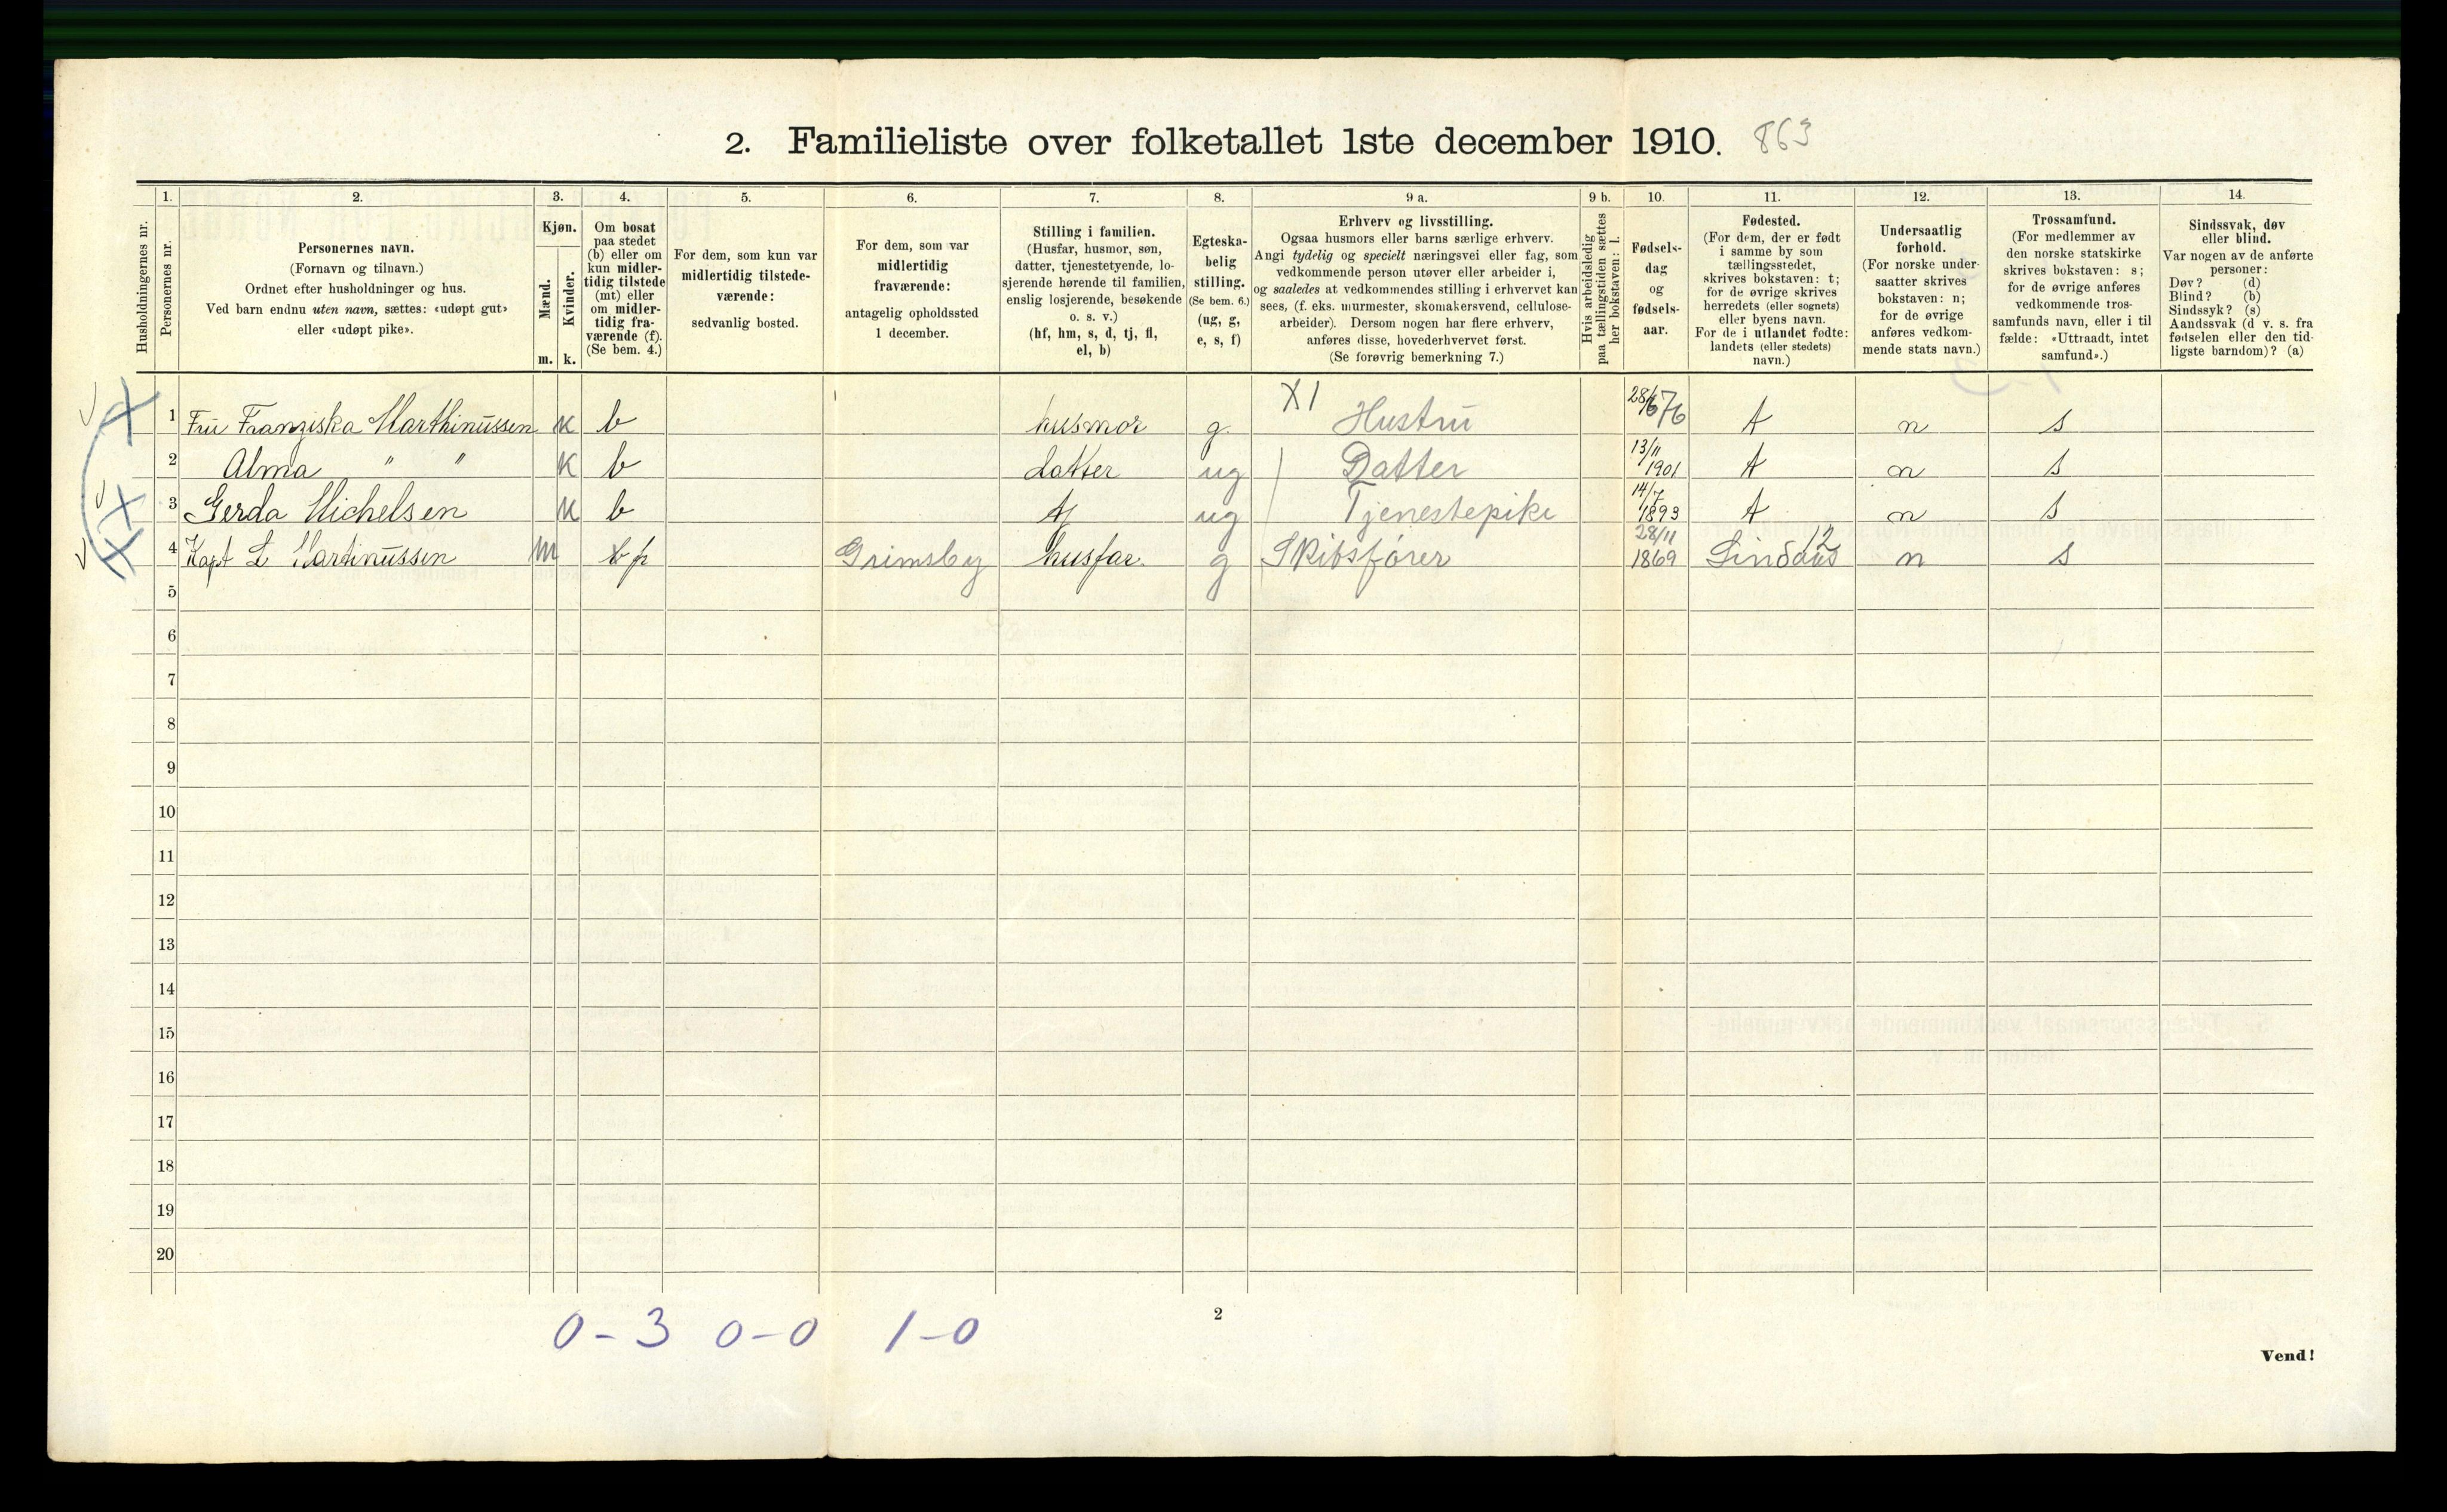 2. Familieliste over folketallet 1ste december 1910. 863
Husholdningernes nr.
1.
Personernes nr.
2.
Personernes navn.
(Fornavn og tilnavn.)
Ordnet efter husholdninger og hus.
Ved barn endnu uten navn, sættes: «udøpt gut»
eller «udøpt pike».
3.
Kjøn.
Mænd.
Kvinder.
m. k.
4.
Om bosat
paa stedet
(b) eller om
kun midler-
tidig tilstede
(mt) eller
om midler-
tidig fra-
værende (f).
(Se bem. 4.)
5.
For dem, som kun var
midlertidig tilstede-
værende:
sedvanlig bosted.
6.
For dem, som var
midlertidig
fraværende:
antagelig opholdssted
1 december.
7.
Stilling i familien.
(Husfar, husmor, søn,
datter, tjenestetyende, lo-
sjerende hørende til familien,
enslig losjerende, besøkende
o. s. v.)
(hf, hm, s, d, tj, fl,
el, b)
8.
Egteska-
belig
stilling.
(Se bem. 6.)
(ug, g,
e, s, f)
9 a.
Erhverv og livsstilling.
Ogsaa husmors eller barns særlige erhverv.
Angi tydelig og specielt næringsvei eller fag, som
vedkommende person utøver eller arbeider i,
og saaledes at vedkommendes stilling i erhvervet kan
sees, (f. eks. murmester, skomakersvend, cellulose-
arbeider). Dersom nogen har flere erhverv,
anføres disse, hovederhvervet først.
(Se forøvrig bemerkning 7.)
9 b.
Hvis arbeidsledig
paa tællingstiden sættes
her bokstaven: l.
10.
Fødsels-
dag
og
fødsels-
aar.
11.
Fødested.
(For dem, der er født
i samme by som
tællingsstedet,
skrives bokstaven: t;
for de øvrige skrives
herredets (eller sognets)
eller byens navn.
For de i utlandet fødte:
landets (eller stedets)
navn.)
12.
Undersaatlig
forhold.
(For norske under-
saatter skrives
bokstaven: n;
for de øvrige
anføres vedkom-
mende stats navn.)
13.
Trossamfund.
(For medlemmer av
den norske statskirke
skrives bokstaven: s;
for de øvrige anføres
vedkommende tros-
samfunds navn, eller i til
fælde: «Uttraadt, intet
samfund».)
14.
Sindssvak, døv
eller blind.
Var nogen av de anførte
personer:
Døv? (d)
Blind? (b)
Sindssyk? (s)
Aandssvak (d v. s. fra
fødselen eller den tid-
ligste barndom)? (a)
X1
1 Fru Franziska Marthinussen k b husmor g. Hustru 76 t n s
2 Alma " " k b datter ug Datter 13/11 1901 t n s
3 Gerda Michelsen k b tj ug Tjenestepike 14/7 1893 t n s
4 Kapt L Martinussen m Grimsby husfar. g Skibsfører 28/11 1869 Lindaas 12 n s
5
6
7
8
9
10
11
12
13
14
15
16
17
18
19
20
0-3 0-0 1-0
2
Vend!